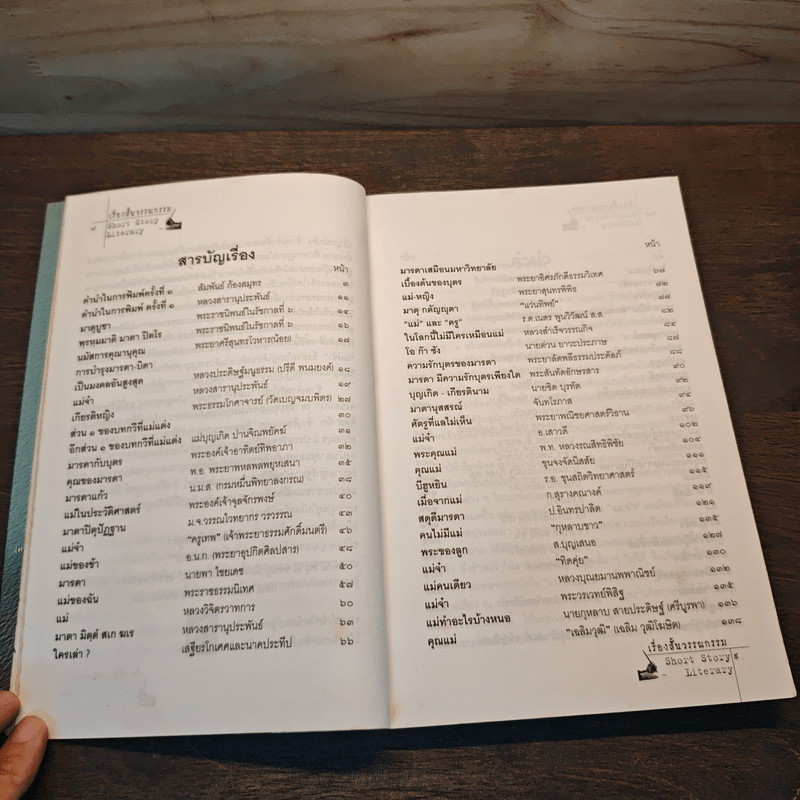 ๘
เรื่องสั้นวรรณกรรม
Short Story
Literary
สารบัญเรื่อง
หน้า
คำนำในการพิมพ์ครั้งที่ ๓ สัมพันธ์ ก้องสมุทร ๓
คำนำในการพิมพ์ ครั้งที่ ๑ หลวงสารานุประพันธ์ ๑๑
มาตุบูชา พระราชนิพนธ์ในรัชกาลที่ ๖ ๑๔
พรหฺมมาติ มาตา ปิตโร พระราชนิพนธ์ในรัชกาลที่ ๖ ๑๖
นมัสการคุณานุคุณ พระยาศรีสุนทรโวหาร(น้อย) ๑๗
การบำรุงมารดา-บิดา
เป็นมงคลอันสูงสุด หลวงประดิษฐ์มนูธรรม (ปรีดี พนมยงค์) ๑๘
แม่จ๋า หลวงสารานุประพันธ์ ๑๙
เกียรติหญิง พระธรรมโกศาจารย์ (วัดเบญจมบพิตร) ๒๗
ส่วน ๑ ของบทกวีที่แม่แต่ง ๓๐
อีกส่วน ๑ ของบทกวีที่แม่แต่ง แม่บุญเกิด ปานจิณพยัคฆ์ ๓๑
มารดากับบุตร พระองค์เจ้าอาทิตย์ทิพอาภา ๓๒
คุณของมารดา พ.อ. พระยาพหลพลพยุหเสนา ๓๕
มารดาแก้ว น.ม.ส. (กรมหมื่นพิทยาลงกรณ) ๓๘
แม่ในประวัติศาสตร์ พระองค์เจ้าจุลจักรพงษ์ ๔๐
มาตาปิตุปัฏฐาน ม.จ.วรรณไวทยากร วรวรรณ ๔๓
แม่จ๋า "ครูเทพ" (เจ้าพระยาธรรมศักดิ์มนตรี) ๔๖
แม่ของข้า อ.น.ก. (พระยาอุปกิตศิลปสาร) ๔๘
มารดา นายพา ไชยเดช ๕๐
แม่ของฉัน พระราชธรรมนิเทศ ๕๗
แม่ หลวงวิจิตรวาทการ ๖๐
มาตา มิตฺตํ สเก ฆเร หลวงสารานุประพันธ์ ๖๓
ใครเล่า ? เสฐียรโกเศศและนาคประทีป ๖๖
หน้า
มารดาเสมือนมหาวิทยาลัย
เบื้องต้นของบุตร พระยาอิศรภักดีธรรมวิเทศ ๖๗
แม่-หญิง พระยาสุนทรพิพิธ ๗๒
มาตุ กตัญญุตา "แว่นทิพย์" ๗๗
"แม่" และ "ครู" ร.ต.เนตร พูนวิวัฒน์ ส.ส. ๘๒
ในโลกนี้ไม่มีใครเหมือนแม่ หลวงสำเร็จวรรณกิจ ๘๔
โอ ก๊า ซัง นายด่วน ยาวะประภาษ ๘๗
ความรักบุตรของมารดา พระยาลัดพลีธรรมประคัลภ์ ๘๘
มารดา มีความรักบุตรเพียงใด พระสันทัดอักษรสาร ๙๐
บุญเกิด - เกียรตินาม นายชิต บุรทัต ๙๒
มาตานุสสรณ์ จันทโรภาส ๙๔
ศัตรูที่แลไม่เห็น พระยาพณิชยศาสตร์วิธาน ๙๖
แม่จ๋า อ.เสาวดี ๑๐๒
พระคุณแม่ พ.ท. หลวงรณสิทธิพิชัย ๑๐๔
คุณแม่ ขุนจงจัดนิสสัย ๑๑๑
บีฮูหยิน ร.อ. ขุนสถิตวิทยาศาสตร์ ๑๑๕
เมื่อจากแม่ ก.สุรางคณางค์ ๑๑๙
สดุดีมารดา ป.อินทรปาลิต ๑๒๑
คนไม่มีแม่ "กุหลาบขาว" ๑๒๕
พระของลูก ส.บุญเสนอ ๑๒๗
แม่จ๋า "ทิดคุ่ย" ๑๓๐
แม่คนเดียว หลวงบุณยมานพพาณิชย์ ๑๓๒
แม่จ๋า พระวรเวทย์พิสิฐ ๑๓๕
แม่ทำอะไรบ้างหนอ นายกุหลาบ สายประดิษฐ์ (ศรีบูรพา) ๑๓๖
คุณแม่ "เฉลิมวุฒิ" (เฉลิม วุฒิโฆษิต) ๑๓๘
เรื่องสั้นวรรณกรรม
Short Story ๙
Literary